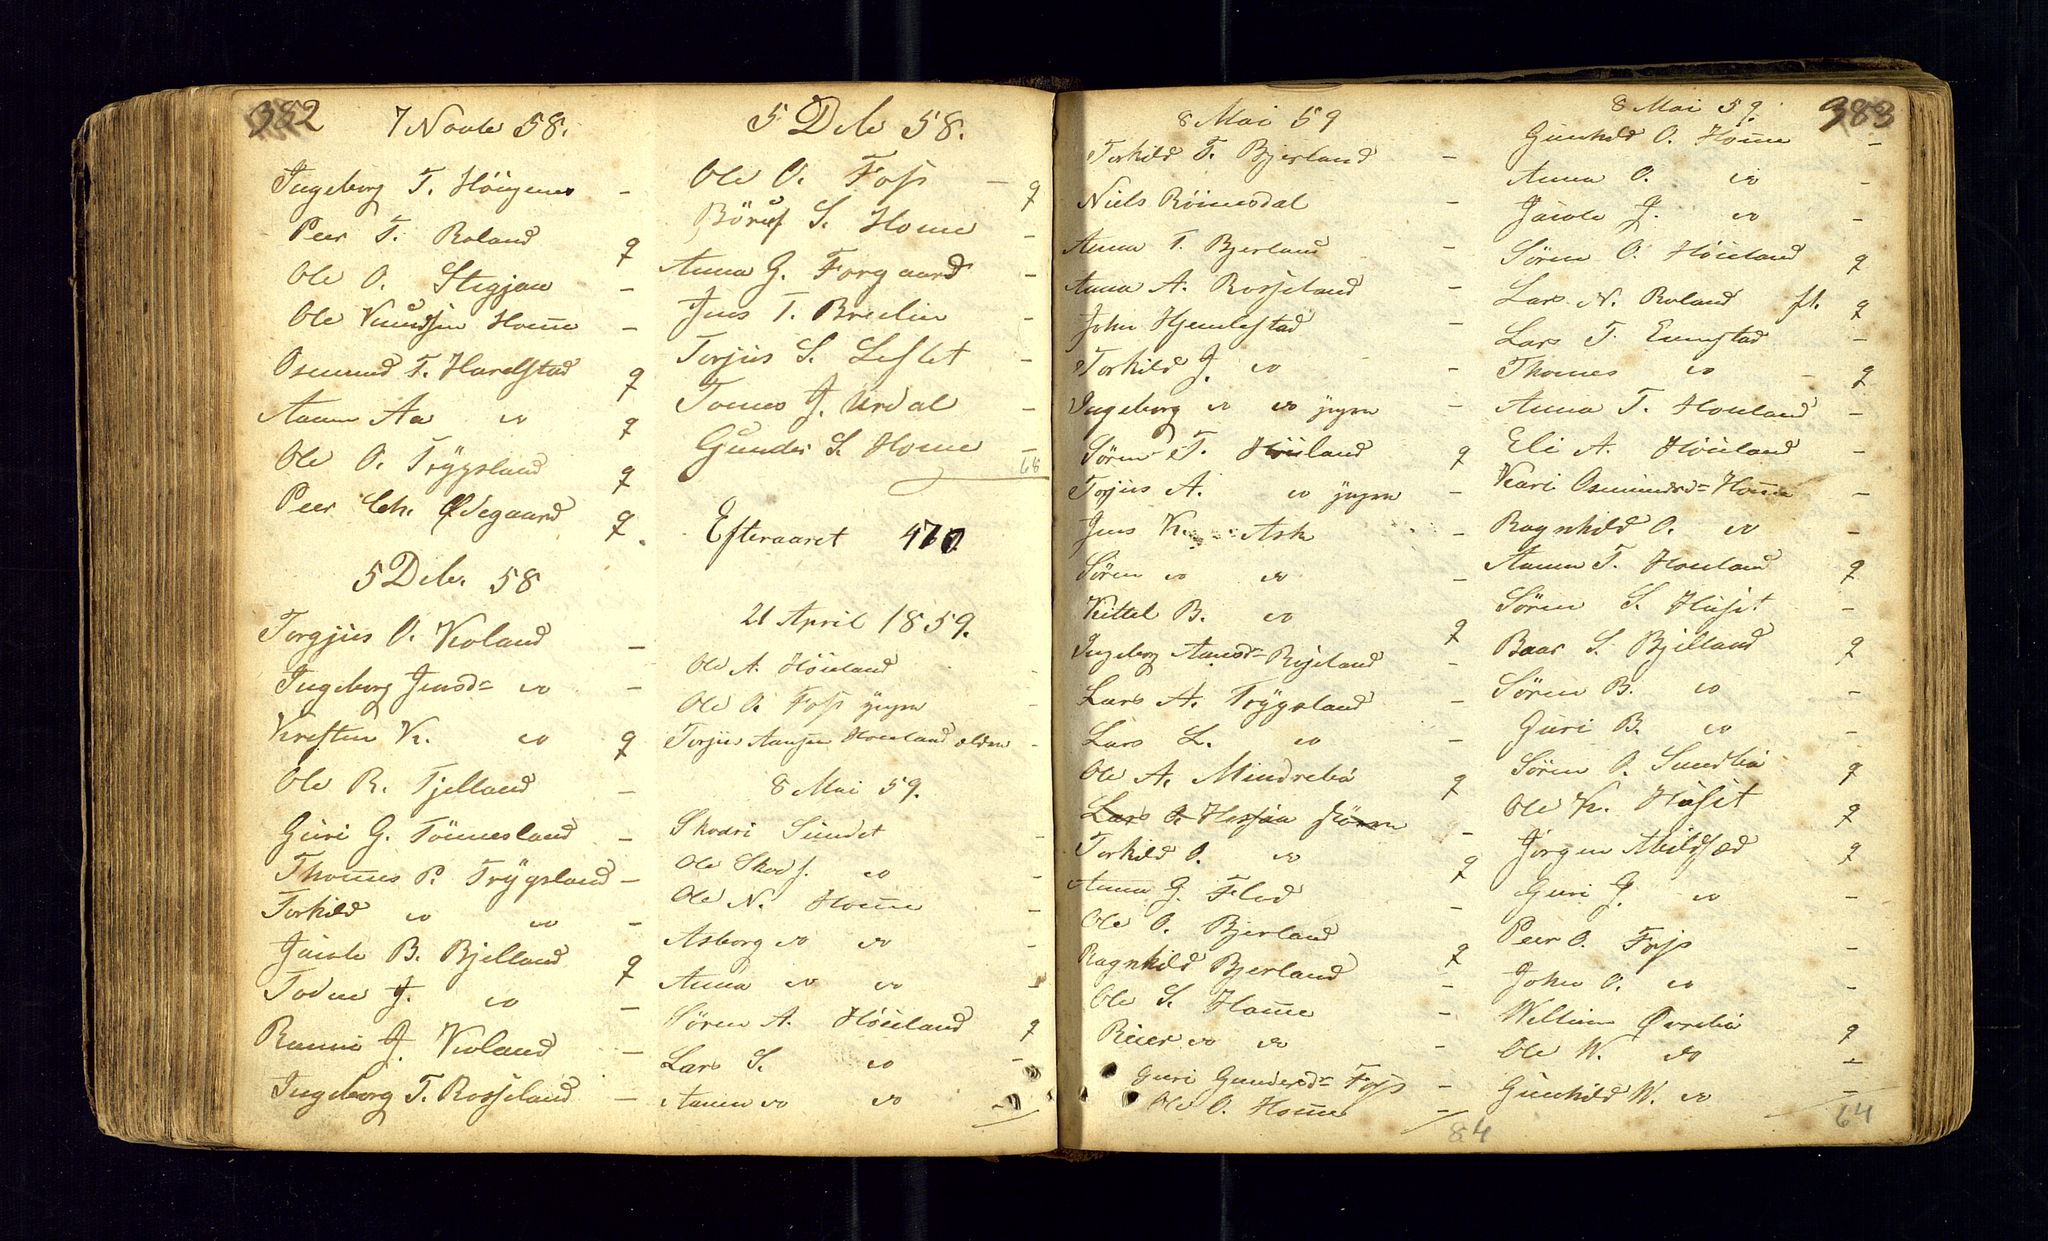 382
7 Novbr 58.
Ingeborg T. Höigenes -
Peer T. Roland q
Ole O. Stigjan -
Ole Knudsen Home -
Osmund T. Harelstad q
Aanen Aa do q
Ole O. Trygsland q
Peer Ch. Ødegaard q.
5 Debr. 58
Torgjus O. Kroland -
Ingeborg Jensdr do -
Kresten K. do q
Ole R. Tjelland -
Guri G. Tönnesland -
Thomes P. Trygsland -
Torkild do do -
Jacob B. Bjelland q
Tosten J. do -
Ranni J. Kroland -
Ingeborg T. Rosseland -
5 Debr 58.
Ole O. Foss - q
Böruf S. Home -
Anna G. Forgaard -
Jens T. Breilien -
Torjus S. Leflet -
Tomes J. Urdal -
Gunder S. Home -
68
Efteraaret 470
21 April 1859.
Ole A. Höiland -
Ole O. Foss yngre -
Torjus Aansen Houland ældre -
8 Mai 59.
Skodri Sundet -
Ole Skods. do -
Ole N. Home -
Asborg do do -
Anna do do -
Sören A. Höieland q
Lars S. do -
Aanen do do -
8 Mai 59
Torkild T. Bjerland -
Niels Röinesdal -
Anna T. Bjerland -
Anna A. Rosseland -
John Hjemlestad -
Torkild J. do -
Ingeborg do do yngre -
Sören T. Höieland q
Torjus A. do yngre -
Jens K. Ask -
Sören do do -
Kittel B. do q
Ingeborg Aanesdr Rosseland -
Lars A. Trygsland -
Lars L. do -
Ole A. Mindrebö q
Lars O. Hessaa större -
Torkild O. do q
Anna G. Flod -
Ole O. Bjerland q
Ragnhild Bjerland -
Ole S. Home -
Reier do do -
Guri Gundersdr Foss -
Ole O. Home -
84
383
8 Mai 59.
Gunhild O. Home -
Anna O. do -
Jacob J. do -
Sören O. Höieland q
Lars N. Roland fl. q
Lars T. Eienstad -
Thomes do - q
Anna T. Houland -
Eli A. Höieland -
Kari Osmundsdr Home -
Ragnhild O. do -
Aanen T. Houland q
Sören S. Huset -
Baar S. Bjelland q
Sören B. do -
Guri B. do -
Sören O. Sundbö q
Ole K. Huset q
Jörgen Abildsæd q
Guri J. do -
Peer O. Foss -
John O. do -
William Övrebö q
Ole W. do -
Gunhild W. do -
64